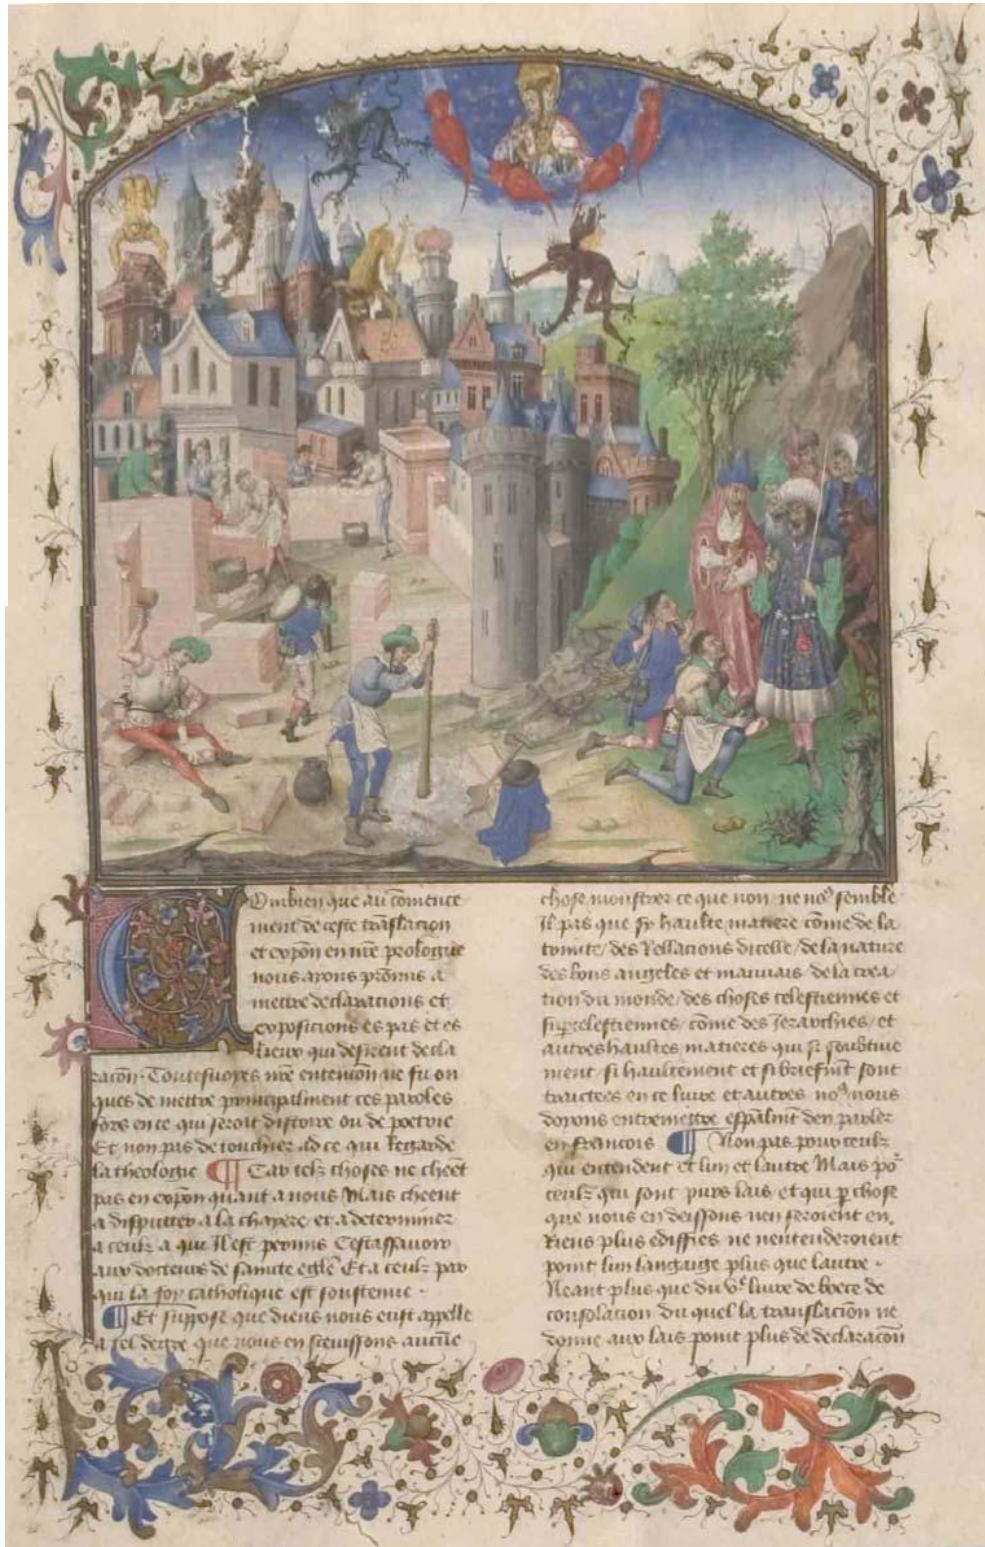 Combien que au comence
ment de ceste translacion
et expon en nre prologue
nous ayons promis a
mettre declaracions et
exposicions es pas et es
lieux qui desirent decla
racon. Toutesuoyes nre entencion ne fu on
ques de mettre principalment ces paroles
fors en ce qui seroit distoire ou de poetrie
Et non pas de touchier ad ce qui regarde
la theologie ¶ Car telz choses ne cheet
pas en expon quant a nous Mais cheent
a disputter a la chayere et a determiner
a ceulz a qui Il est permis Cestassauoir
aux docteurs de saincte eglē Et a ceulz par
qui la foy catholique est soustenue .
¶ Et suppose que dieus nous eust appelle
a tel degre que nous en sceussions aucue
chose monstrer ce que non ne noꝯ semble
Il pas que sy haulte matiere cōme de la
trinite / des Rellacions dicelle / de la nature
des bons angeles et mauuais de la crea /
tion du monde / des choses celestiennes et
supcelestiennes / cōme des Jerarchies / et
autres haultes matieres qui si soubtiue
ment / si haultement et si briefmt sont
traictees en ce liure et autres noꝯ nous
doyons entremettre espālmt den parler
en francois ¶ Non pas pour ceulz
qui entendent et lun et lautre Mais poʳ
ceulz qui sont purs lais / et qui p chose
que nous en deissons nen seroient en
Riens plus ediffies ne nentenderoient
point lun langaige plus que lautre .
Neant plus que du vᵉ liure de boece de
consolacion du quel la translacion ne
donne aux lais point plus de declaracōn